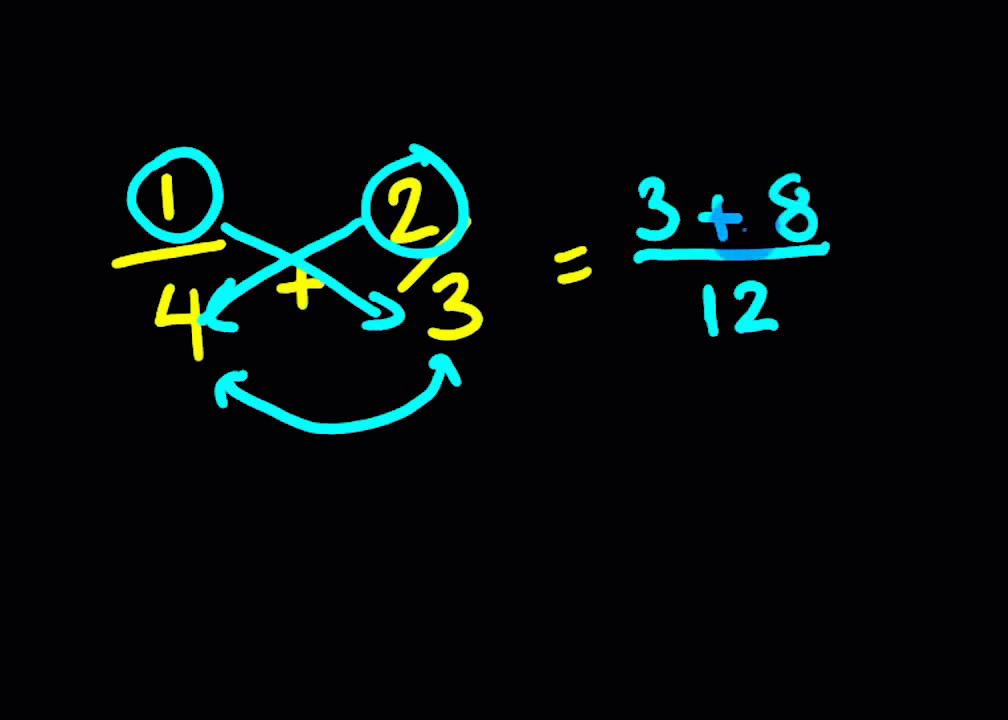 1/4 + 2/3 = (3 + 8)/12